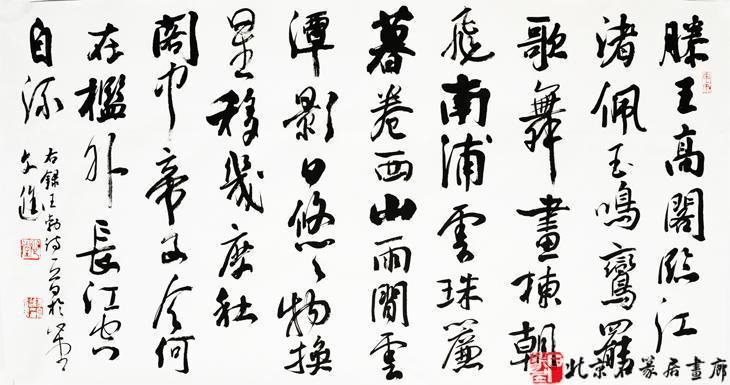 滕王高閣臨江
渚佩玉鳴鸞罷
歌舞畫棟朝
飛南浦雲珠簾
暮卷西山雨閒雲
潭影日悠々物換
星移幾度秋
閣中帝子今何
在檻外長江空
自流
右録王勃诗一首於
文進
北京篆居畫廊